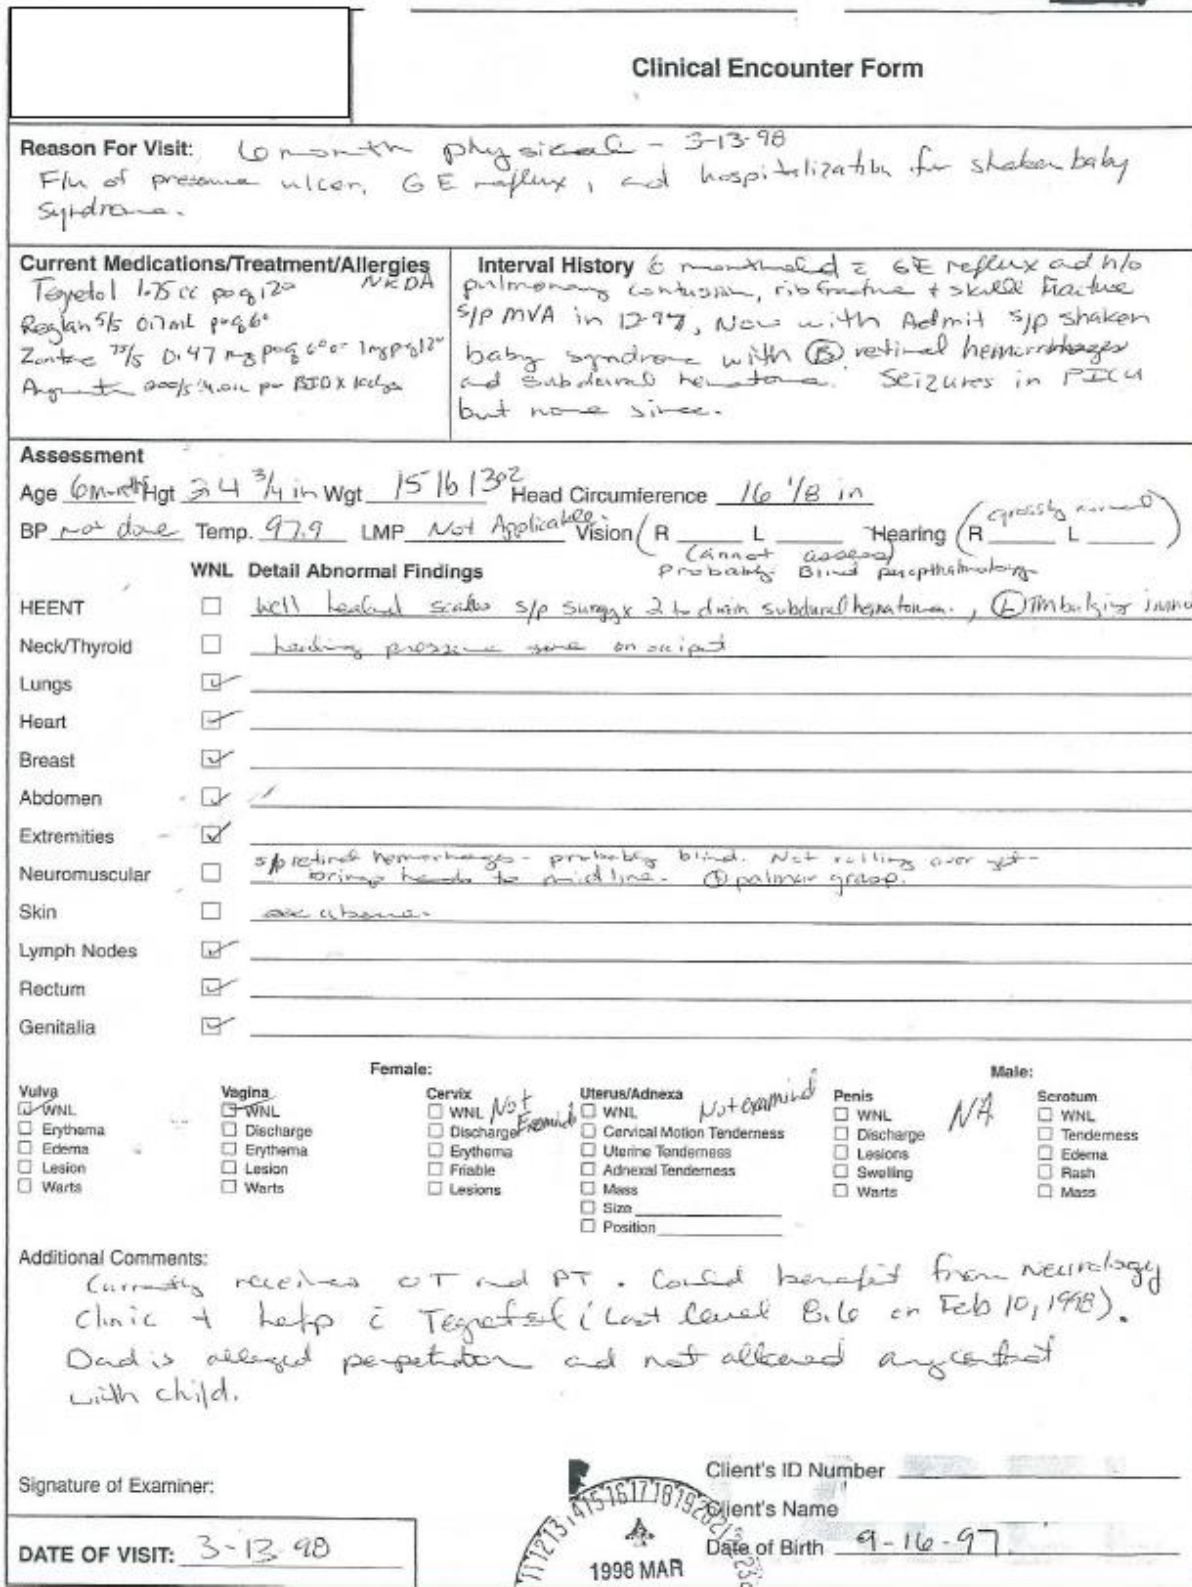 Clinical Encounter Form
Reason For Visit: 6 month physical - 3-13-98
F/u of pressure ulcer, GE reflux, and hospitalization for shaken baby
Syndrome.
Current Medications/Treatment/Allergies
NKDA
Tegretol 1.75 cc po q 12°
Reglan 5/5 0.7 mL po q 6°
Zantac 75/5 0.47 mg po q 6° or 1mg po q 12°
200/5 po BID X
Interval History 6 month old c̄ GE reflux and h/o
pulmonary contusion, rib fracture + skull fracture
s/p MVA in 12-97, Now with Admit s/p shaken
baby syndrome with Ⓑ retinal hemorrhages
and subdural hematoma. Seizures in PICU
but none since.
Assessment
Age 6 month Hgt 24 3/4 in Wgt 15 lb 13oz Head Circumference 16 1/8 in
BP not done Temp. 97.9 LMP Not Applicable Vision (R L Hearing (R L )
(grossly normal)
(cannot assess)
Probably Blind per opthalmology
WNL Detail Abnormal Findings
HEENT well healed s/p surgery x 2 to drain subdural hematoma., Ⓛ TM bulging
Neck/Thyroid healing pressure sore on occiput
Lungs
Heart
Breast
Abdomen
Extremities
s/p retinal hemorrhages - probably blind. Not rolling over yet -
Neuromuscular brings hands to midline. ⊕ palmar grasp.
Skin see above.
Lymph Nodes
Rectum
Genitalia
Female:
Male:
Vulva
WNL
Erythema
Edema
Lesion
Warts
Vagina
WNL
Discharge
Erythema
Lesion
Warts
Cervix
WNL Not
Discharge Examined
Erythema
Friable
Lesions
Uterus/Adnexa
WNL Not examined
Cervical Motion Tenderness
Uterine Tenderness
Adnexal Tenderness
Mass
Size
Position
Penis
WNL
Discharge
Lesions
Swelling
Warts
NA
Scrotum
WNL
Tenderness
Edema
Rash
Mass
Additional Comments:
Currently receives OT and PT. Could benefit from Neurology
Clinic + help c̄ Tegretol (Last level 8.6 on Feb 10, 1998).
Dad is alleged perpetrator and not allowed any contact
with child.
Signature of Examiner:
Client's ID Number
Client's Name
Date of Birth 9-16-97
DATE OF VISIT: 3-13-98
11 12 13 14 15 16 17 18 19 20 21 22 23
1998 MAR